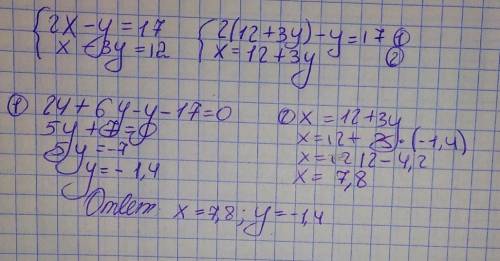 {2x - y = 17
x - 3y = 12
{2(12+3y) - y = 17 ①
x = 12 + 3y ②
① 24 + 6y - y - 17 = 0
5y + 7 = 0
5y = -7
y = -1,4
② x = 12 + 3y
x = 12 + 3 · (-1,4)
x = 12 - 4,2
x = 7,8
Ответ: x = 7,8; y = -1,4